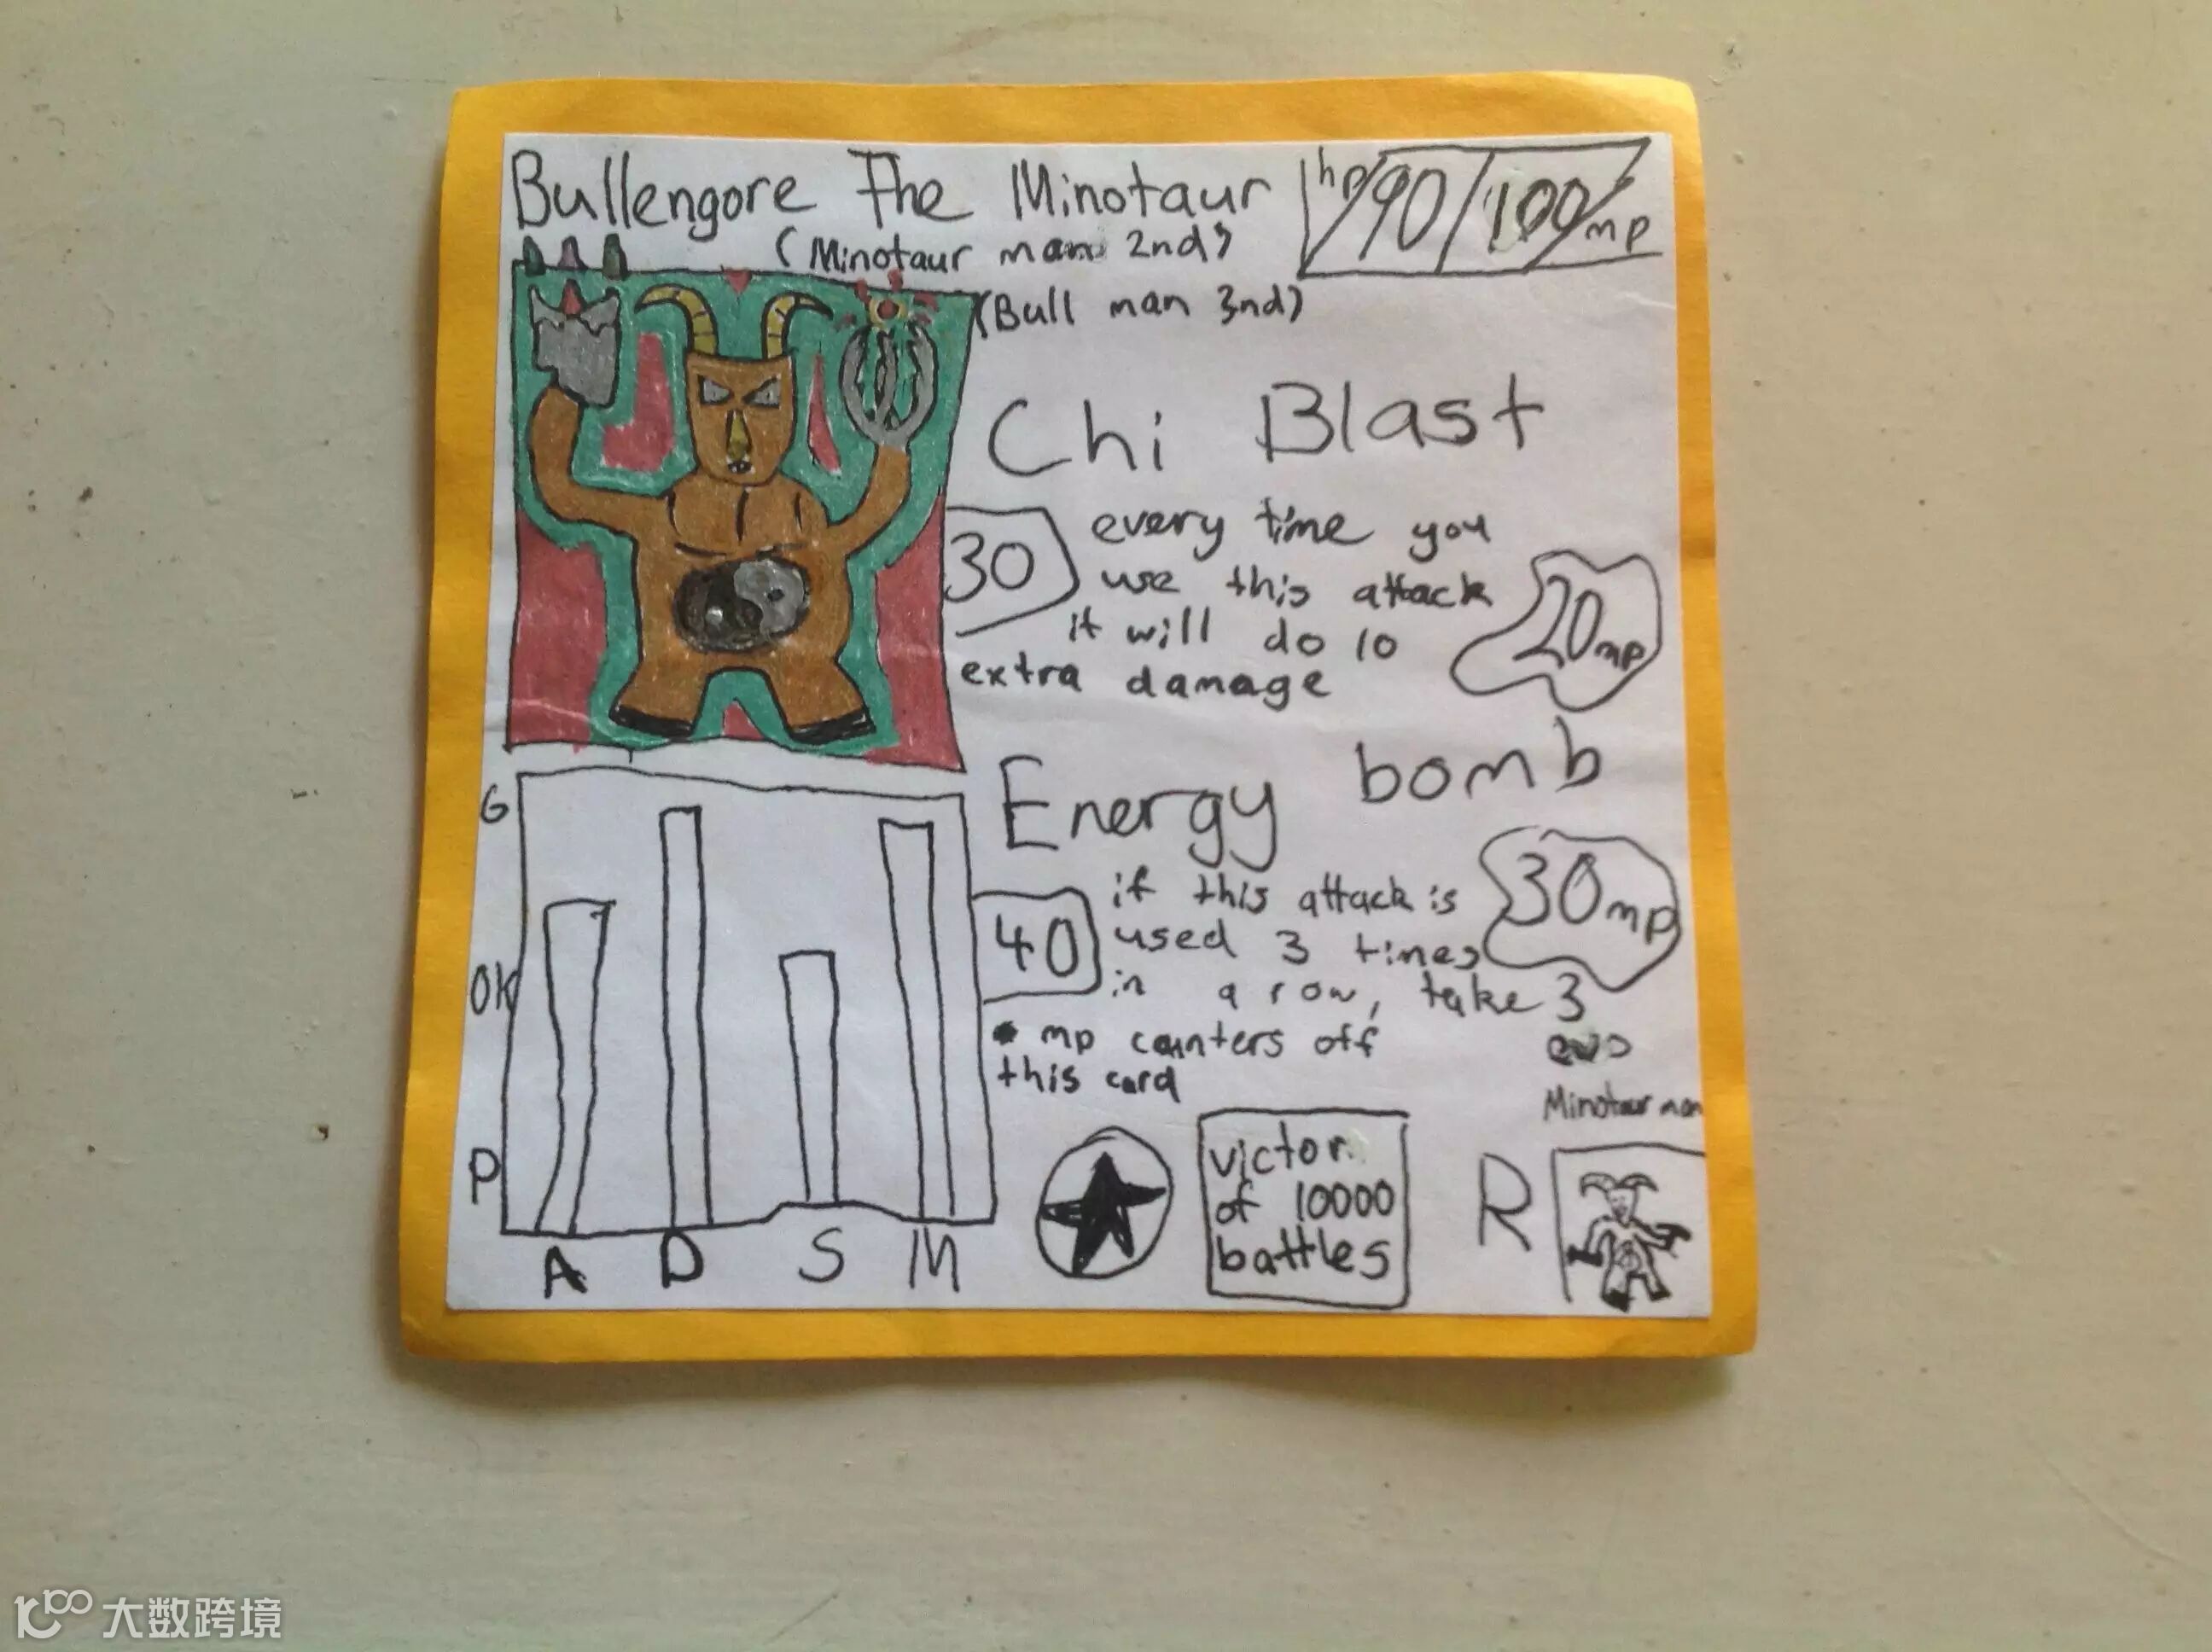 Bullengore The Minotaur
hp 90/100 mp
(Minotaur man 2nd)
(Bull man 3nd)
Chi Blast
30
every time you
use this attack
it will do 10
extra damage
20 mp
Energy bomb
40
if this attack is
used 3 times
in a row, take 3
mp counters off
this card
30 mp
evo
Minotaur man
G
OK
P
A D S M
victor
of 10000
battles
R
大数跨境